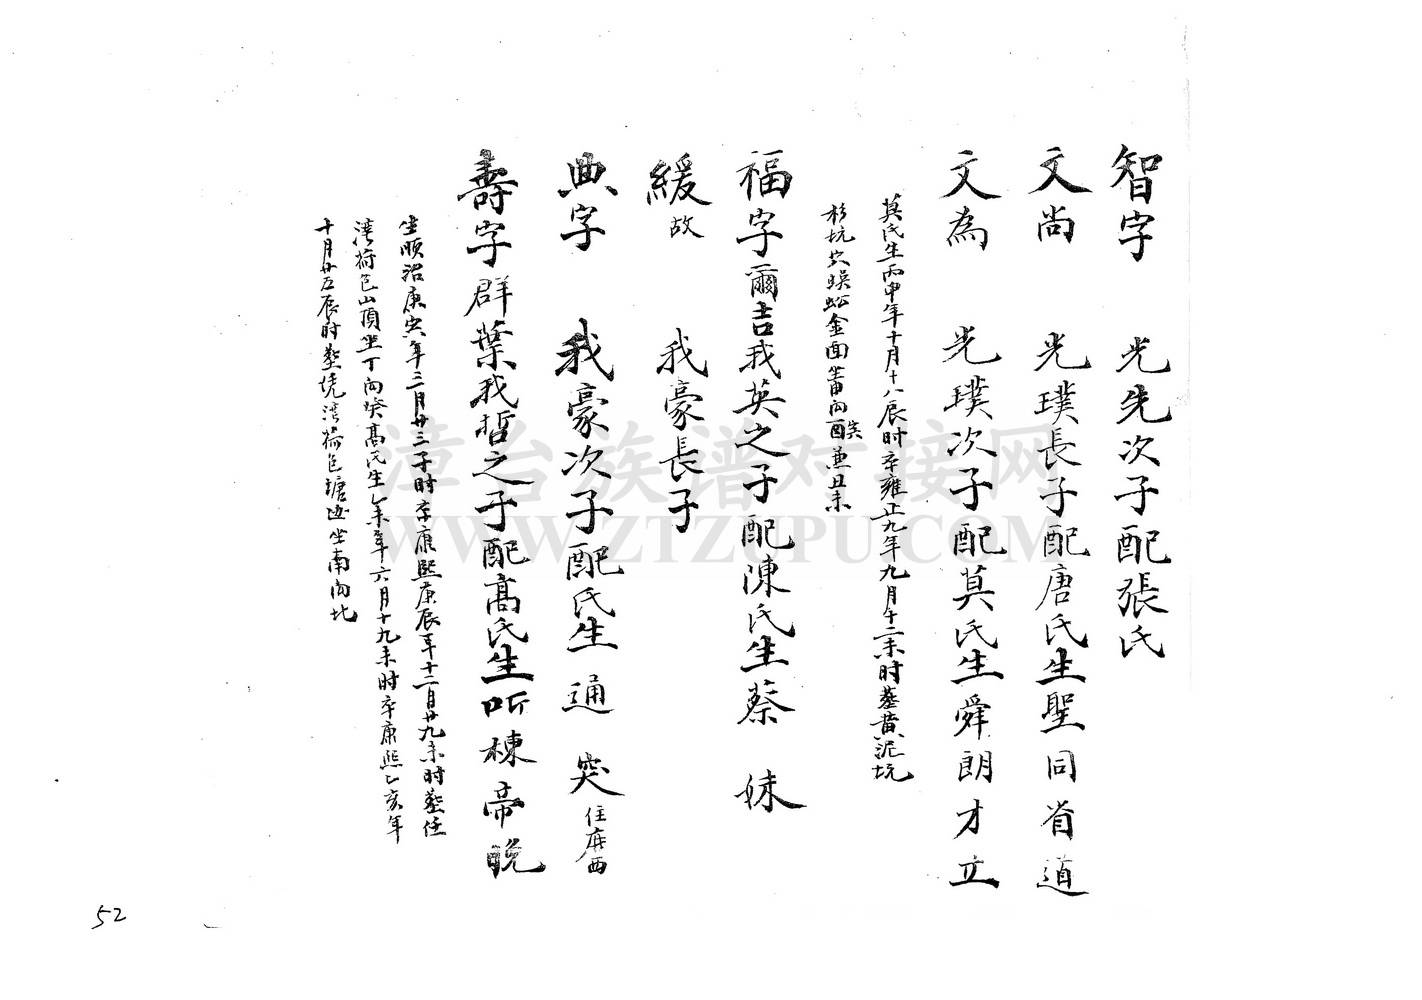 智字 光先次子配張氏
文尚 光璞長子配唐氏生聖同首道
文為 光璞次子配莫氏生舜朗才立
莫氏生丙申年十月十八辰时卒雍正九年九月十二未时墓黄泥坑
杉坑穴蜈蚣金面坐甲向酉兼丑未
福字爾吉我英之子配陳氏生蔡 妹
緩故 我豪長子
典字 我豪次子配氏生通 突住廣西
壽字群葉我哲之子配高氏生听棟帝晚
生順治庚寅年三月廿三子时卒康熙庚辰年十二月廿九未时墓任
湾荷包山頂坐丁向癸高氏生乙未年六月十九未时卒康熙乙亥年
十月廿五辰时墓湾荷包塘边坐南向北
漳台族谱对接网
WWW.ZTZUPU.COM
52